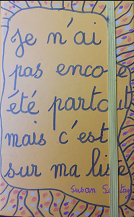 Je n'ai
pas enco e
été partout
mais c'est
sur ma lis e
Susan S